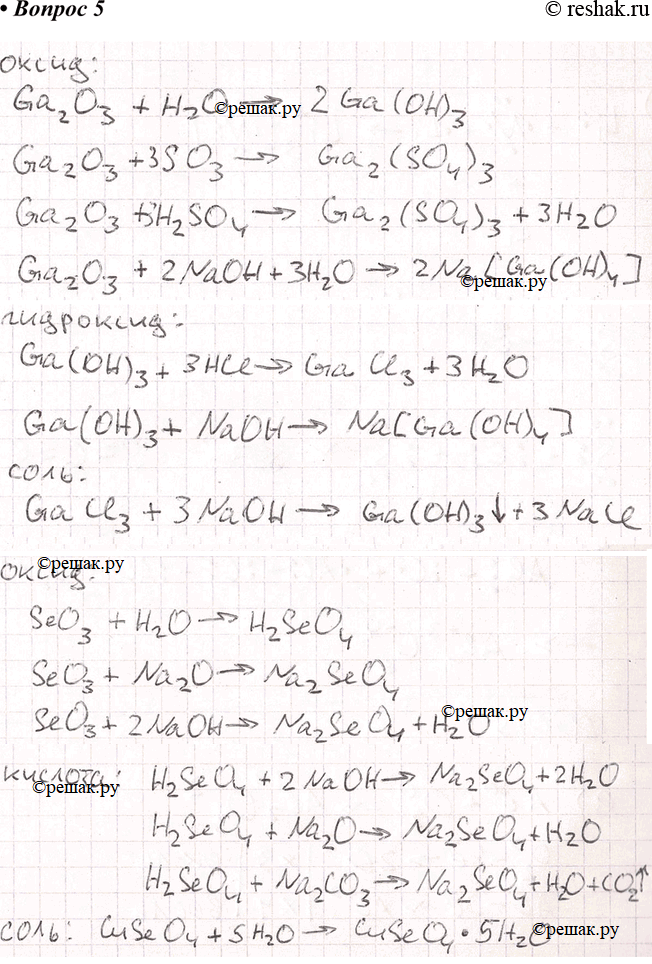 • Вопрос 5 © reshak.ru
оксид:
Ga₂O₃ + H₂O → 2Ga(OH)₃
©решак.ру
Ga₂O₃ + 3SO₃ → Ga₂(SO₄)₃
Ga₂O₃ + 3H₂SO₄ → Ga₂(SO₄)₃ + 3H₂O
Ga₂O₃ + 2NaOH + 3H₂O → 2Na[Ga(OH)₄]
©решак.ру
гидроксид:
Ga(OH)₃ + 3HCl → GaCl₃ + 3H₂O
Ga(OH)₃ + NaOH → Na[Ga(OH)₄]
соль:
GaCl₃ + 3NaOH → Ga(OH)₃↓ + 3NaCl
©решак.ру
оксид:
SeO₃ + H₂O → H₂SeO₄
SeO₃ + Na₂O → Na₂SeO₄
©решак.ру
SeO₃ + 2NaOH → Na₂SeO₄ + H₂O
кислота: H₂SeO₄ + 2NaOH → Na₂SeO₄ + 2H₂O
©решак.ру
H₂SeO₄ + Na₂O → Na₂SeO₄ + H₂O
H₂SeO₄ + Na₂CO₃ → Na₂SeO₄ + H₂O + CO₂↑
соль: CuSeO₄ + 5H₂O → CuSeO₄•5H₂O
©решак.ру